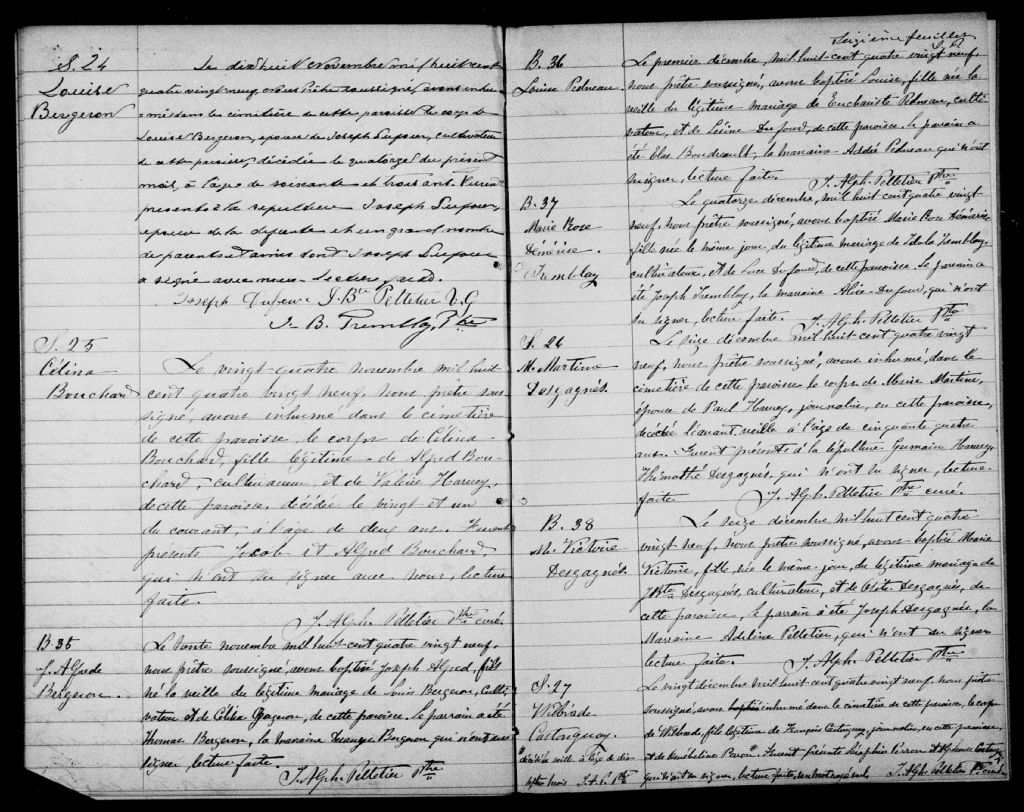 S. 24
Louise
Bergeron
Le dixhuit Novembre mil huit cent
quatre vingt neuf, nous Prêtre soussigné avons inhu-
-mé dans le cimetière de cette paroisse le corps de
Louise Bergeron, épouse de Joseph Dufour, cultivateur
de cette paroisse, décédée le quatorze du présent
mois, à l'âge de soixante et trois ans. Furent
presents à la sepulture Joseph Dufour,
époux de la défunte et un grand nombre
de parents et amis dont Joseph Dufour
a signé avec nous. Lecture faite.
Joseph Dufour J. Bte Pelletier V. G
J. B. Tremblay Ptre
S. 25
Célina
Bouchard
Le vingt quatre novembre mil huit
cent quatre vingt neuf, nous prêtre sous-
signé, avons inhumé dans le cimetière
de cette paroisse, le corps de Célina
Bouchard, fille légitime de Alfred Bou-
chard, cultivateur, et de Valérie Harvey,
de cette paroisse, décédée le vingt et un
du courant, à l'âge de deux ans. Furent
presents Jacob et Alfred Bouchard,
qui n'ont su signer avec nous, lecture
faite.
J. Alph. Pelletier Ptre curé.
B 35
J. Alfred
Bergeron.
Le trente novembre mil huit cent quatre vingt neuf,
nous prêtre soussigné, avons baptisé Joseph Alfred, fils
né la veille du légitime mariage de Louis Bergeron, culti-
vateur et de Célina Gagnon, de cette paroisse, le parrain a été
Thomas Bergeron, la marraine Bergeron qui n'ont su
signer, lecture faite.
J. Alph. Pelletier Ptre
Seizième feuillet
B. 36
Louise Pedneau
Le premier décembre, mil huit cent quatre vingt neuf,
nous prêtre soussigné, avons baptisé Louise, fille née la
veille du légitime mariage de Euchariste Pedneau, culti-
vateur, et de Dufour, de cette paroisse. Le parrain a
été Boudreault, la marraine Pedneau qui n'ont
su signer, lecture faite. J. Alph. Pelletier Ptre
B. 37
Marie Rose
Démérise
Tremblay
Le quatorze décembre, mil huit cent quatre vingt
neuf, nous prêtre soussigné, avons baptisé Marie Rose Démérise
fille née le même jour, du légitime mariage de Tremblay,
cultivateur, et de Luce Dufour, de cette paroisse. Le parrain a
été Joseph Tremblay, la marraine Alice Dufour, qui n'ont
su signer, lecture faite. J. Alph. Pelletier Ptre
S. 26
M. Martine
Desgagnés.
Le seize décembre mil huit cent quatre vingt
neuf, nous prêtre soussigné, avons inhumé, dans le
cimetière de cette paroisse le corps de Marie Martine,
épouse de Paul Harvey, journalier, en cette paroisse,
décédée l'avant veille à l'âge de cinquante quatre
ans. Furent présents à la sépulture Germain Harvey,
Thimothé Desgagnés, qui n'ont su signer, lecture
faite. J. Alph. Pelletier Ptre curé.
B. 38
M. Victoire
Desgagnés.
Le seize décembre mil huit cent quatre
vingt neuf, nous prêtre soussigné, avons baptisé Marie
Victoire, fille née le même jour, du légitime mariage de
Desgagnés, cultivateur, et de Desgagnés, de
cette paroisse, le parrain a été Joseph Desgagnés, la
Marraine Adeline Pelletier, qui n'ont su signer
lecture faite. J. Alph. Pelletier Ptre
S. 27
Wilbrade
Castonguay
décédé la veille à l'âge de dix
sept mois J. A. P. Ptre
Le vingt décembre mil huit cent quatre vingt neuf, nous prêtre
soussigné, avons baptisé inhumé dans le cimetière de cette paroisse, le corps
de Wilbrade, fils légitime de François Castonguay, journalier, en cette paroisse,
et de Perron. Furent présents Perron et Alphonse Castonguay
qui n'ont su signer, lecture faite, un mot rayé nul. J. Alph. Pelletier Ptre curé